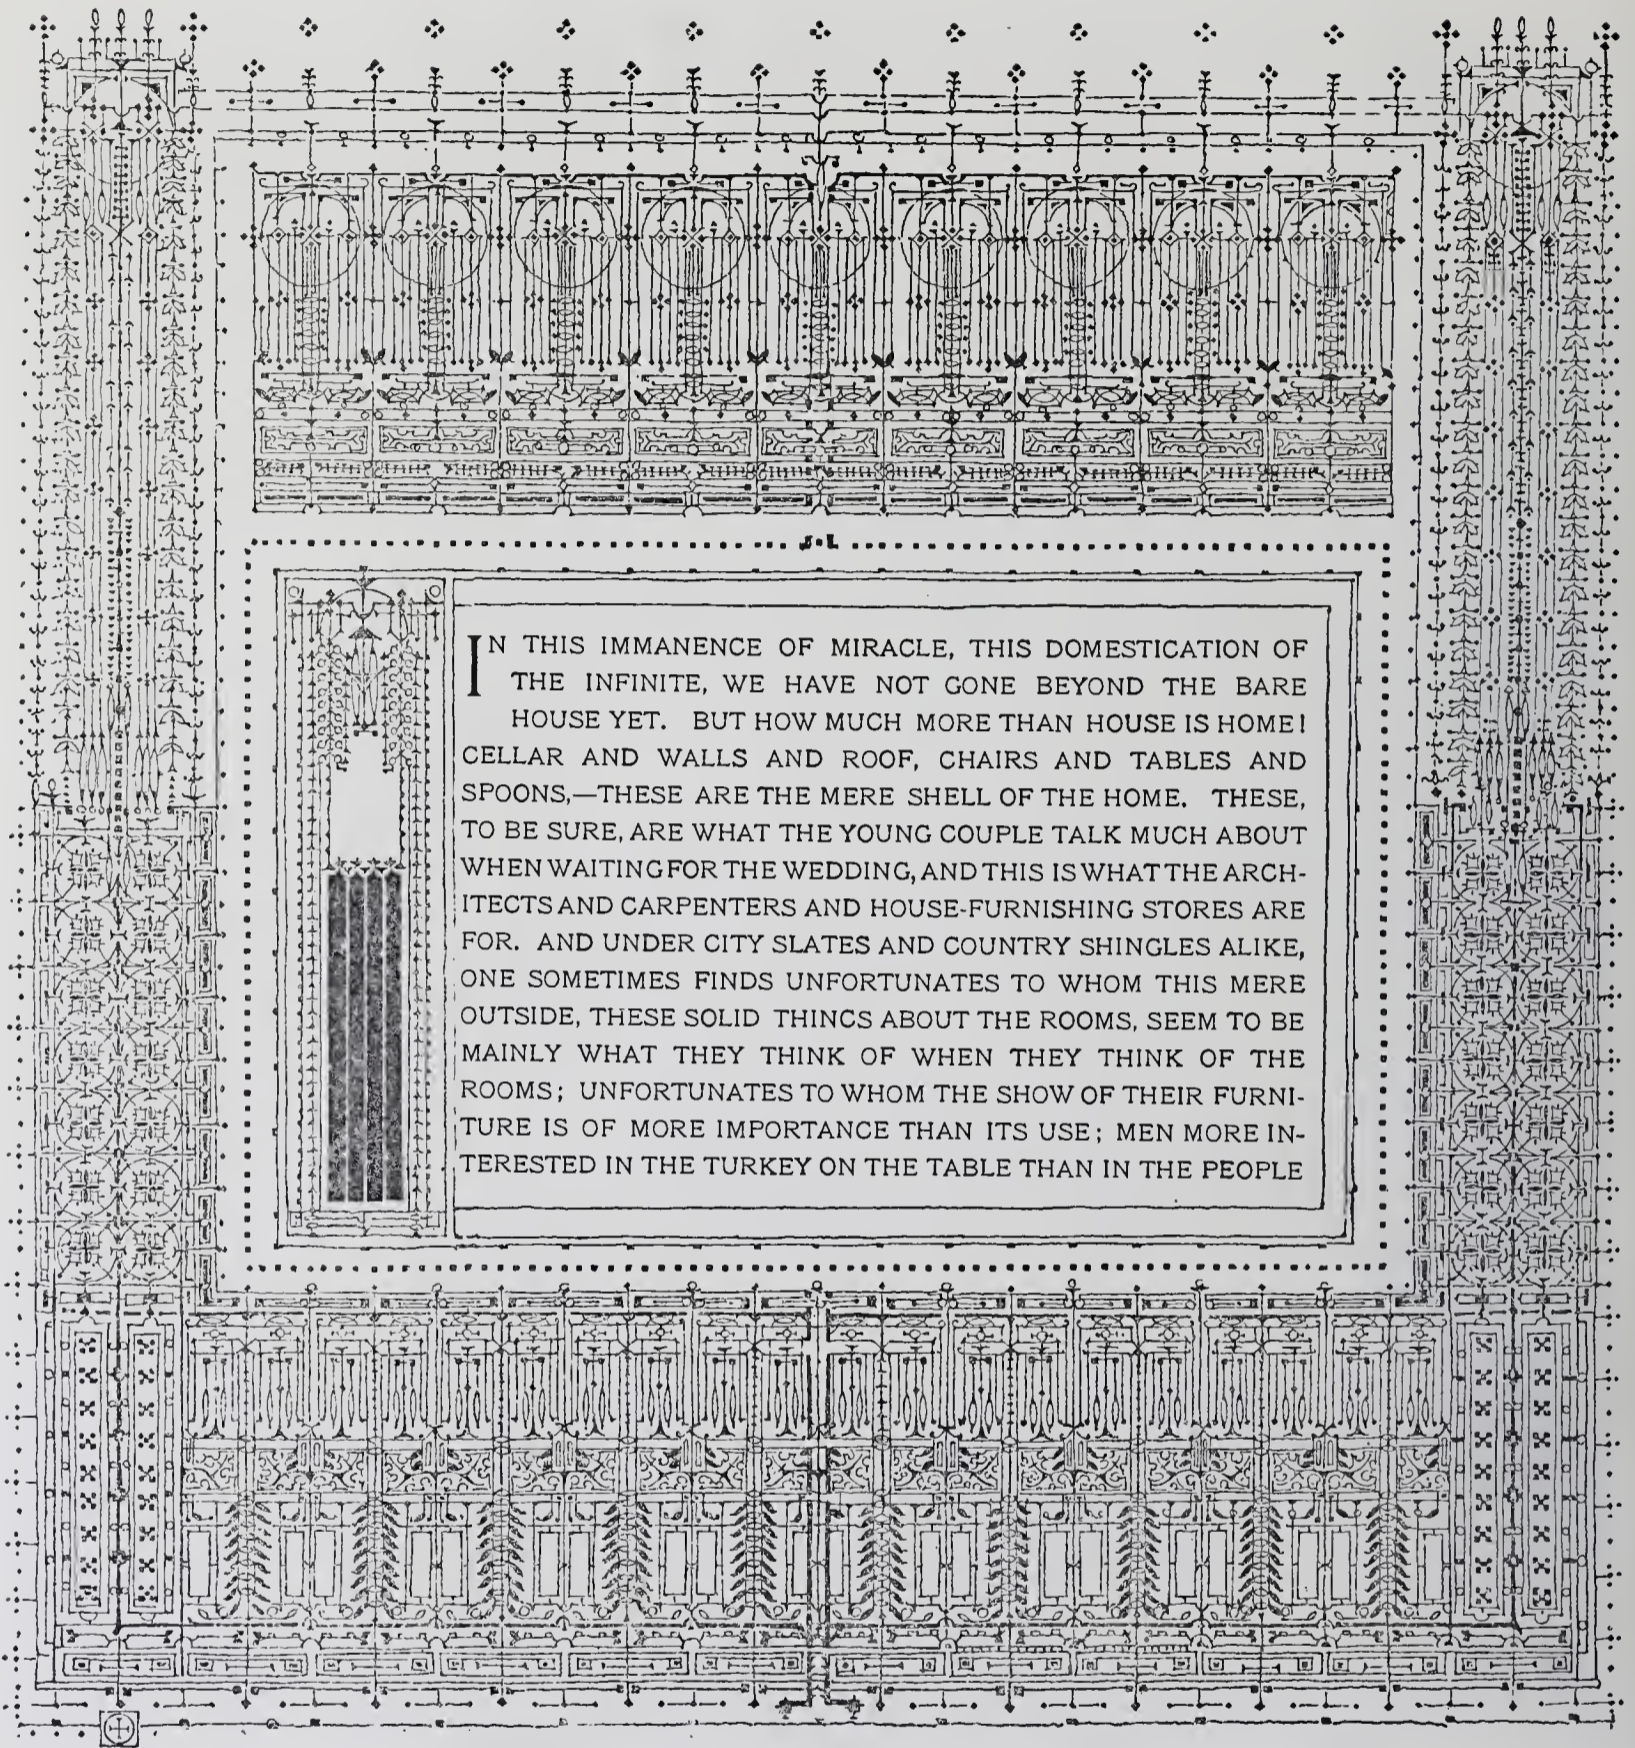 IN THIS IMMANENCE OF MIRACLE, THIS DOMESTICATION OF
THE INFINITE, WE HAVE NOT GONE BEYOND THE BARE
HOUSE YET. BUT HOW MUCH MORE THAN HOUSE IS HOME!
CELLAR AND WALLS AND ROOF, CHAIRS AND TABLES AND
SPOONS,—THESE ARE THE MERE SHELL OF THE HOME. THESE,
TO BE SURE, ARE WHAT THE YOUNG COUPLE TALK MUCH ABOUT
WHEN WAITING FOR THE WEDDING, AND THIS IS WHAT THE ARCH-
ITECTS AND CARPENTERS AND HOUSE-FURNISHING STORES ARE
FOR. AND UNDER CITY SLATES AND COUNTRY SHINGLES ALIKE,
ONE SOMETIMES FINDS UNFORTUNATES TO WHOM THIS MERE
OUTSIDE, THESE SOLID THINGS ABOUT THE ROOMS, SEEM TO BE
MAINLY WHAT THEY THINK OF WHEN THEY THINK OF THE
ROOMS; UNFORTUNATES TO WHOM THE SHOW OF THEIR FURNI-
TURE IS OF MORE IMPORTANCE THAN ITS USE; MEN MORE IN-
TERESTED IN THE TURKEY ON THE TABLE THAN IN THE PEOPLE